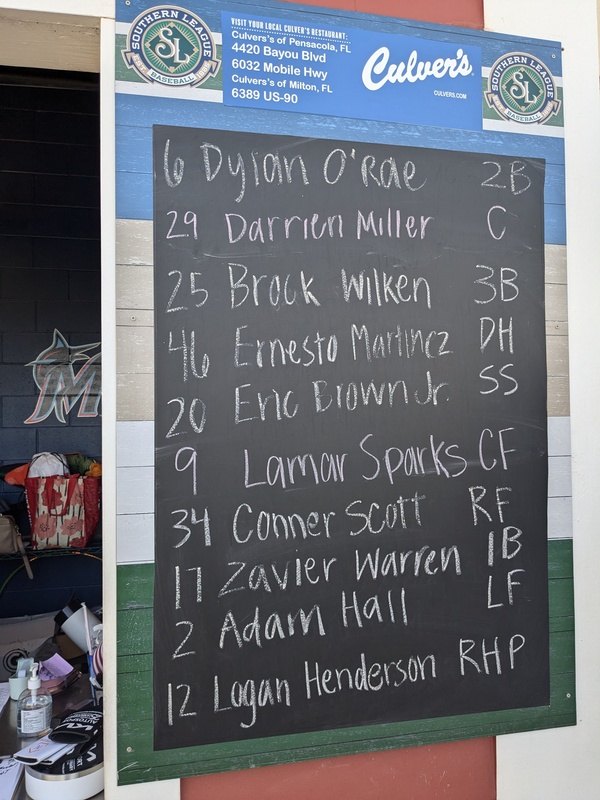 SOUTHERN LEAGUE
SL
BASEBALL
VISIT YOUR LOCAL CULVER'S RESTAURANT:
Culver's of Pensacola, FL
4420 Bayou Blvd
6032 Mobile Hwy
Culver's of Milton, FL
6389 US-90
Culver's
CULVERS.COM
SOUTHERN LEAGUE
SL
BASEBALL
6 Dylan O'Rae 2B
29 Darrien Miller C
25 Brock Wilken 3B
46 Ernesto Martinez DH
20 Eric Brown Jr. SS
9 Lamar Sparks CF
34 Conner Scott RF
17 Zavier Warren 1B
2 Adam Hall LF
12 Logan Henderson RHP
M